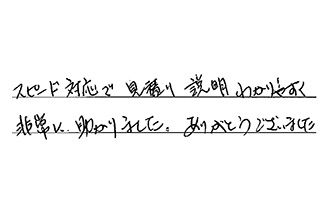 スピード対応で 見積り 説明 わかりやすく
非常に 助かりました。ありがとうございました